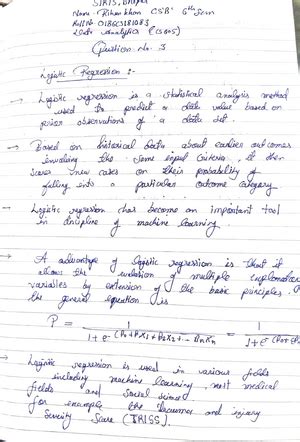 SIRTS, Bhopal
Name - Rihan Khan CSB 6th Sem
Data Analytics
Question No. 3
Logistic Regression :-
→ Logistic regression is a statistical analysis method
used to predict a data value based on
prior observations of a data set.
→ Based on historical data about earlier outcomes
involving the same input criteria, it then
scores new cases on their probability of
falling into a particular outcome category
→ Logistic regression has become an important tool
in discipline of machine learning.
→ A advantage of logistic regression is that it
allows the evaluation of multiple explanatory
variables by extension of the basic principles.
the general equation is
P = 1 / 1 + e-(β0+β1X1+β2X2+... βnXn) = 1 / 1+e
→ Logistic regression is used in various fields
including machine learning, most medical
fields and social science
for example the and injury
Severity Score (TRISS).